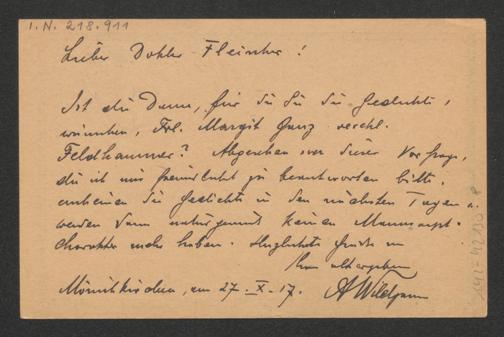 I.N. 218.911
Lieber Doktor Fleischer!
Ist die Dame, für die Sie die Gedichte
wünschen, Frl. Margit Ganz verehl.
Feldhammer? Abgesehen von dieser Vorfrage,
die ich mir freundlichst zu beantworten bitte,
erscheinen die Gedichte in den nächsten Tagen u.
werden dann naturgemäß keinen Manuskript-
charakter mehr haben. Herzlichste Grüße von
Ihrem altergebenen
Mönichkirchen, am 27. X. 17. A Wildgans